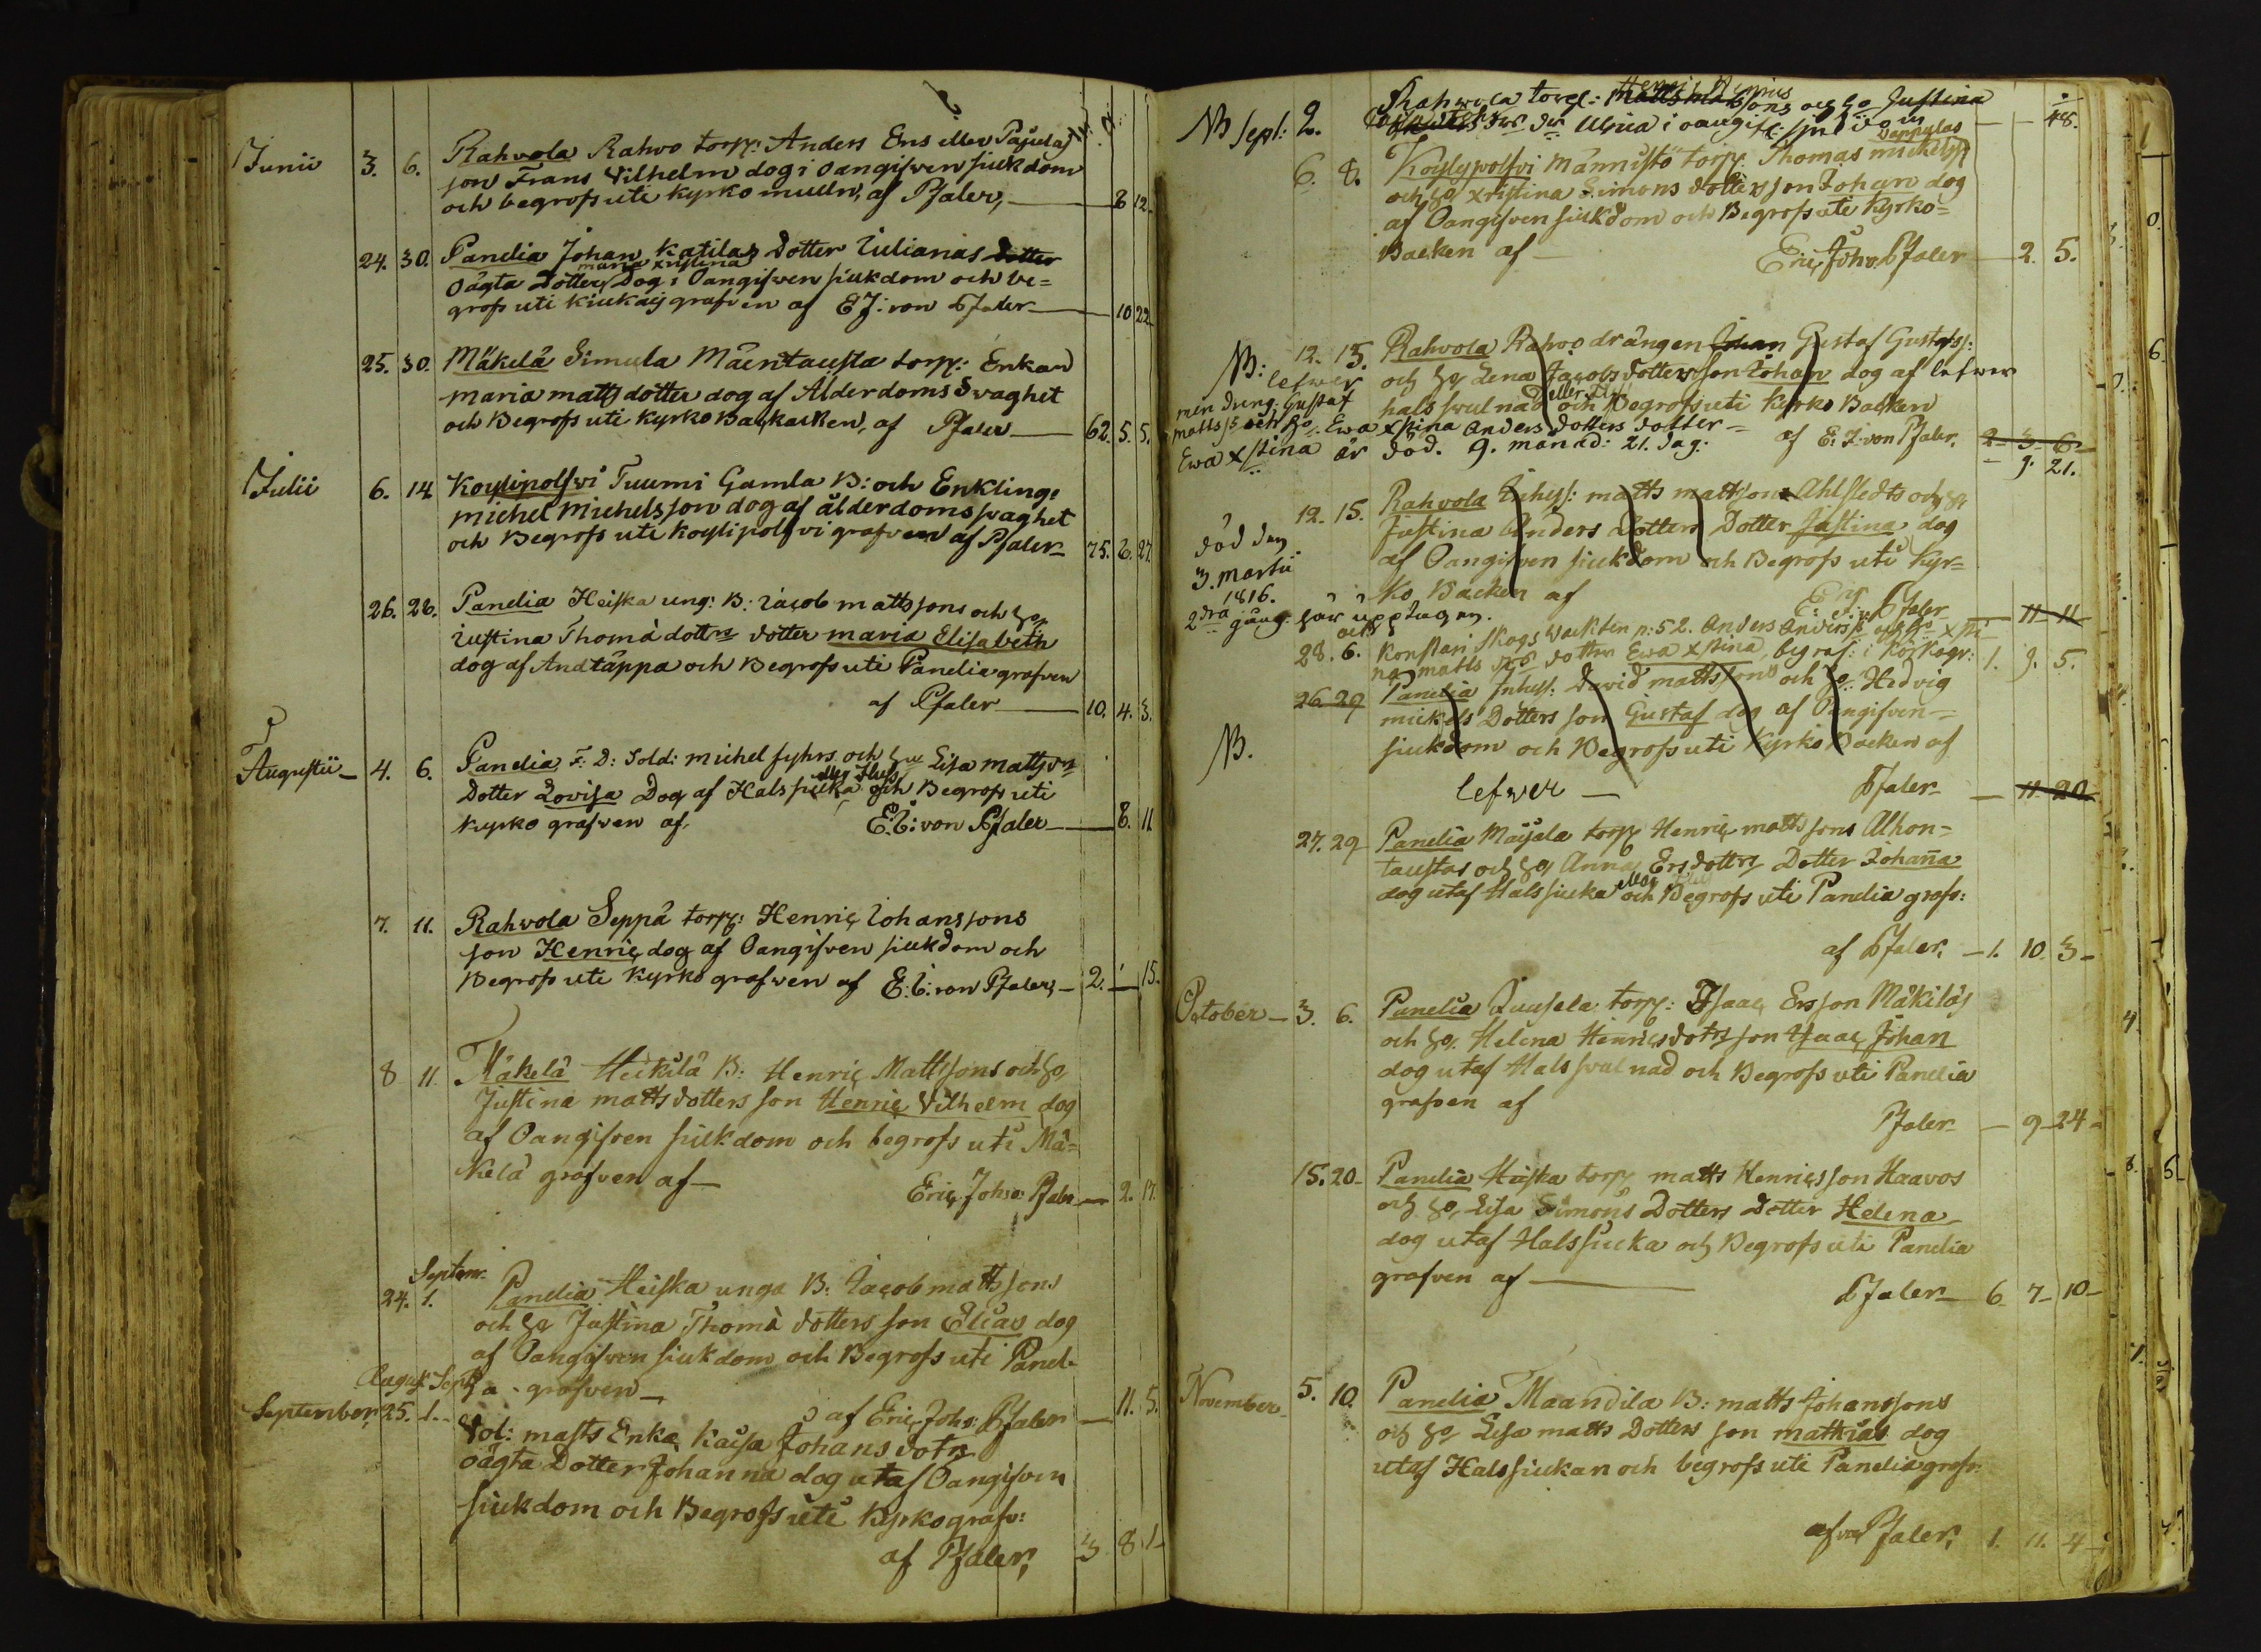 Junii 3. 6. Rahvola Rahvo torp: Anders Ers eller Pajulas
son Frans Vilhelm dog i oangifven siukdom
och begrofs uti kyrko mullen, af Pfaler, 8 12
24. 30. Panelia Johan Katilas Dotter Iulianas dotter
maria xristina
oägta Dotter Dog i Oangifven siukdom och be=
grofs uti Kiukais grafven af E J: von Pfaler 10 22
25. 30. Mäkelä Simula Mäentausta torp: Enkan
maria matts dotter dog af Alderdoms Svaghet
och Begrofs uti kyrko Backen, af Pfaler 62. 5. 5.
Julii 6. 14. Koylipolsvi Tuumi Gamla B: och Enkling:
michel michelsson dog af ålderdoms svaghet
och Begrofs uti koylipolsvi grafven af Pfaler 75. 6. 27.
26. 28. Panelia Heiska ung: B: Iacob mattssons och ho
Iustina Thomà dottrs dotter maria Elisabeth
dog af Andtäppa och Begrofs uti Panelia grafven
af Pfaler 10. 4. 3.
Augustii 4. 6. Panelia F: D: Sold: michel fyhrs och hu Lisa matts drs
Dotter Lovisa Dog af Halssiuka och Begrofs uti
kyrko grafven af E: I: von Pfaler 8. 11
7. 11. Rahvola Seppä torp: Henric Iohanssons
son Henric dog af Oangifven siukdom och
Begrofs uti kyrko grafven af E: I: von Pfaler, 2. 1 15.
8 11 Mäkelä Heikilä B: Henric Mattssons och ho
Justina matts dotters son Henric Vilhelm dog
af Oangifven siukdom och begrofs uti Mä=
kelä grafven af
Eric Johs: Pfaler 2. 17.
Septemr
24. 1. Panelia Heiska unga B: Iacob mattssons
och ho Justina Thomà dotters son Elias dog
af Oangifven siukdom och Begrofs uti Panel-
ia grafven
af Eric Johs: Pfaler 11. 5.
August Sept
September 25. 1. Sol: masts Enka Kaisa Johans dotrs
oägta Dotter Johanna dog utaf Oangifven
siukdom och Begrofs uti Kyrkografv:
af Pfaler, 3 8 1
Henric
NB Sept: 2. Rahvola torp: Mattssons och ho Justina
i oangif: 48.
Seppulas
6. 8. Koylypolsvi Männistö torp: Thomas mickelss
och ho xristina Simons dotters son Johan dog
af Oangifven siukdom och Begrofs uti Kyrko=
Backen af Eric Johs. Pfaler 2. 5.
NB: 12. 15. Rahvola Rahvo drängen Johan Gustaf Gustafss:
lefver och ho Lena Jacobs dotters son Iohan dog af lefver
men dreng: Gustaf hals svulnad och Begrofs uti Kyrko Backen
matts: och ho: Ewa xstina Anders dotters dotter
Ewa xstina är död. 9. månad: 21. dag: af E: J: von Pfaler. 2 3 6
9. 21.
12. 15. Rahvola Inhys: matts mattsons Ahlstedts och ho
död den Justina Anders Dotters Dotter Justina dog
3. Martii af Oangifven siukdom och Begrofs uti Kyr=
1816. ko Backen af
2dra gång: här upptagen. Pfaler 11 11
28. 6. Konstari Skogs wackten n: 52. Anders Anderss: och ho xsti
na matts dotter Ewa xstina, begraf: i Körkogr: 1. 9. 5.
26 29 Panelia Inhys: David mattssons och ho: Hedvig
mickels Dotters son Gustaf dog af Oangifven
NB. siukdom och Begrofs uti Kyrko Backen af
lefver Pfaler 11 20
27. 29 Panelia Maijala torp Henric matts sons Alhon=
taustas och ho Anna Ersdottrs Dotter Iohaña
dog utaf Halssiuka och Begrofs uti Panelia grafv:
af Pfaler, 1. 10. 3
October 3. 6. Panelia Quusela torp: Isaac Ersson Mäkiläs
och ho. Helena Henricsdotrs son Isaac Johan
dog utaf Hals svulnad och Begrofs uti Panelia
grafven af
Pfaler 9 24
15. 20. Panelia Heiska torp matts Henricsson Haavos
och ho, Lisa Simons Dotters Dotter Helena
dog utaf Halssiucka och Begrofs uti Panelia
grafven af
Pfaler 6 7 10
November 5. 10. Panelia Maandila B: matts Johanssons
och ho Lisa matts Dotters son mathias dog
utaf Halssiukan och begrofs uti Panelia grafv:
af von Pfaler, 1. 11. 4